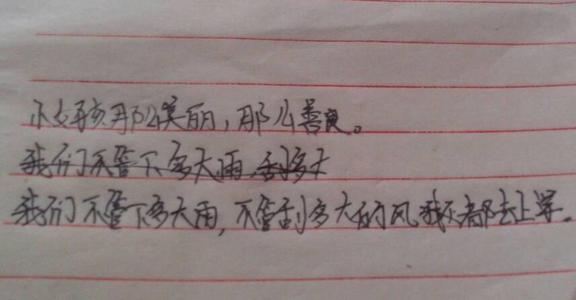 小女孩那么美丽,那么善良。
我们不管下多大雨 刮多大
我们不管下多大雨,不管刮多大的风我们都去上学。